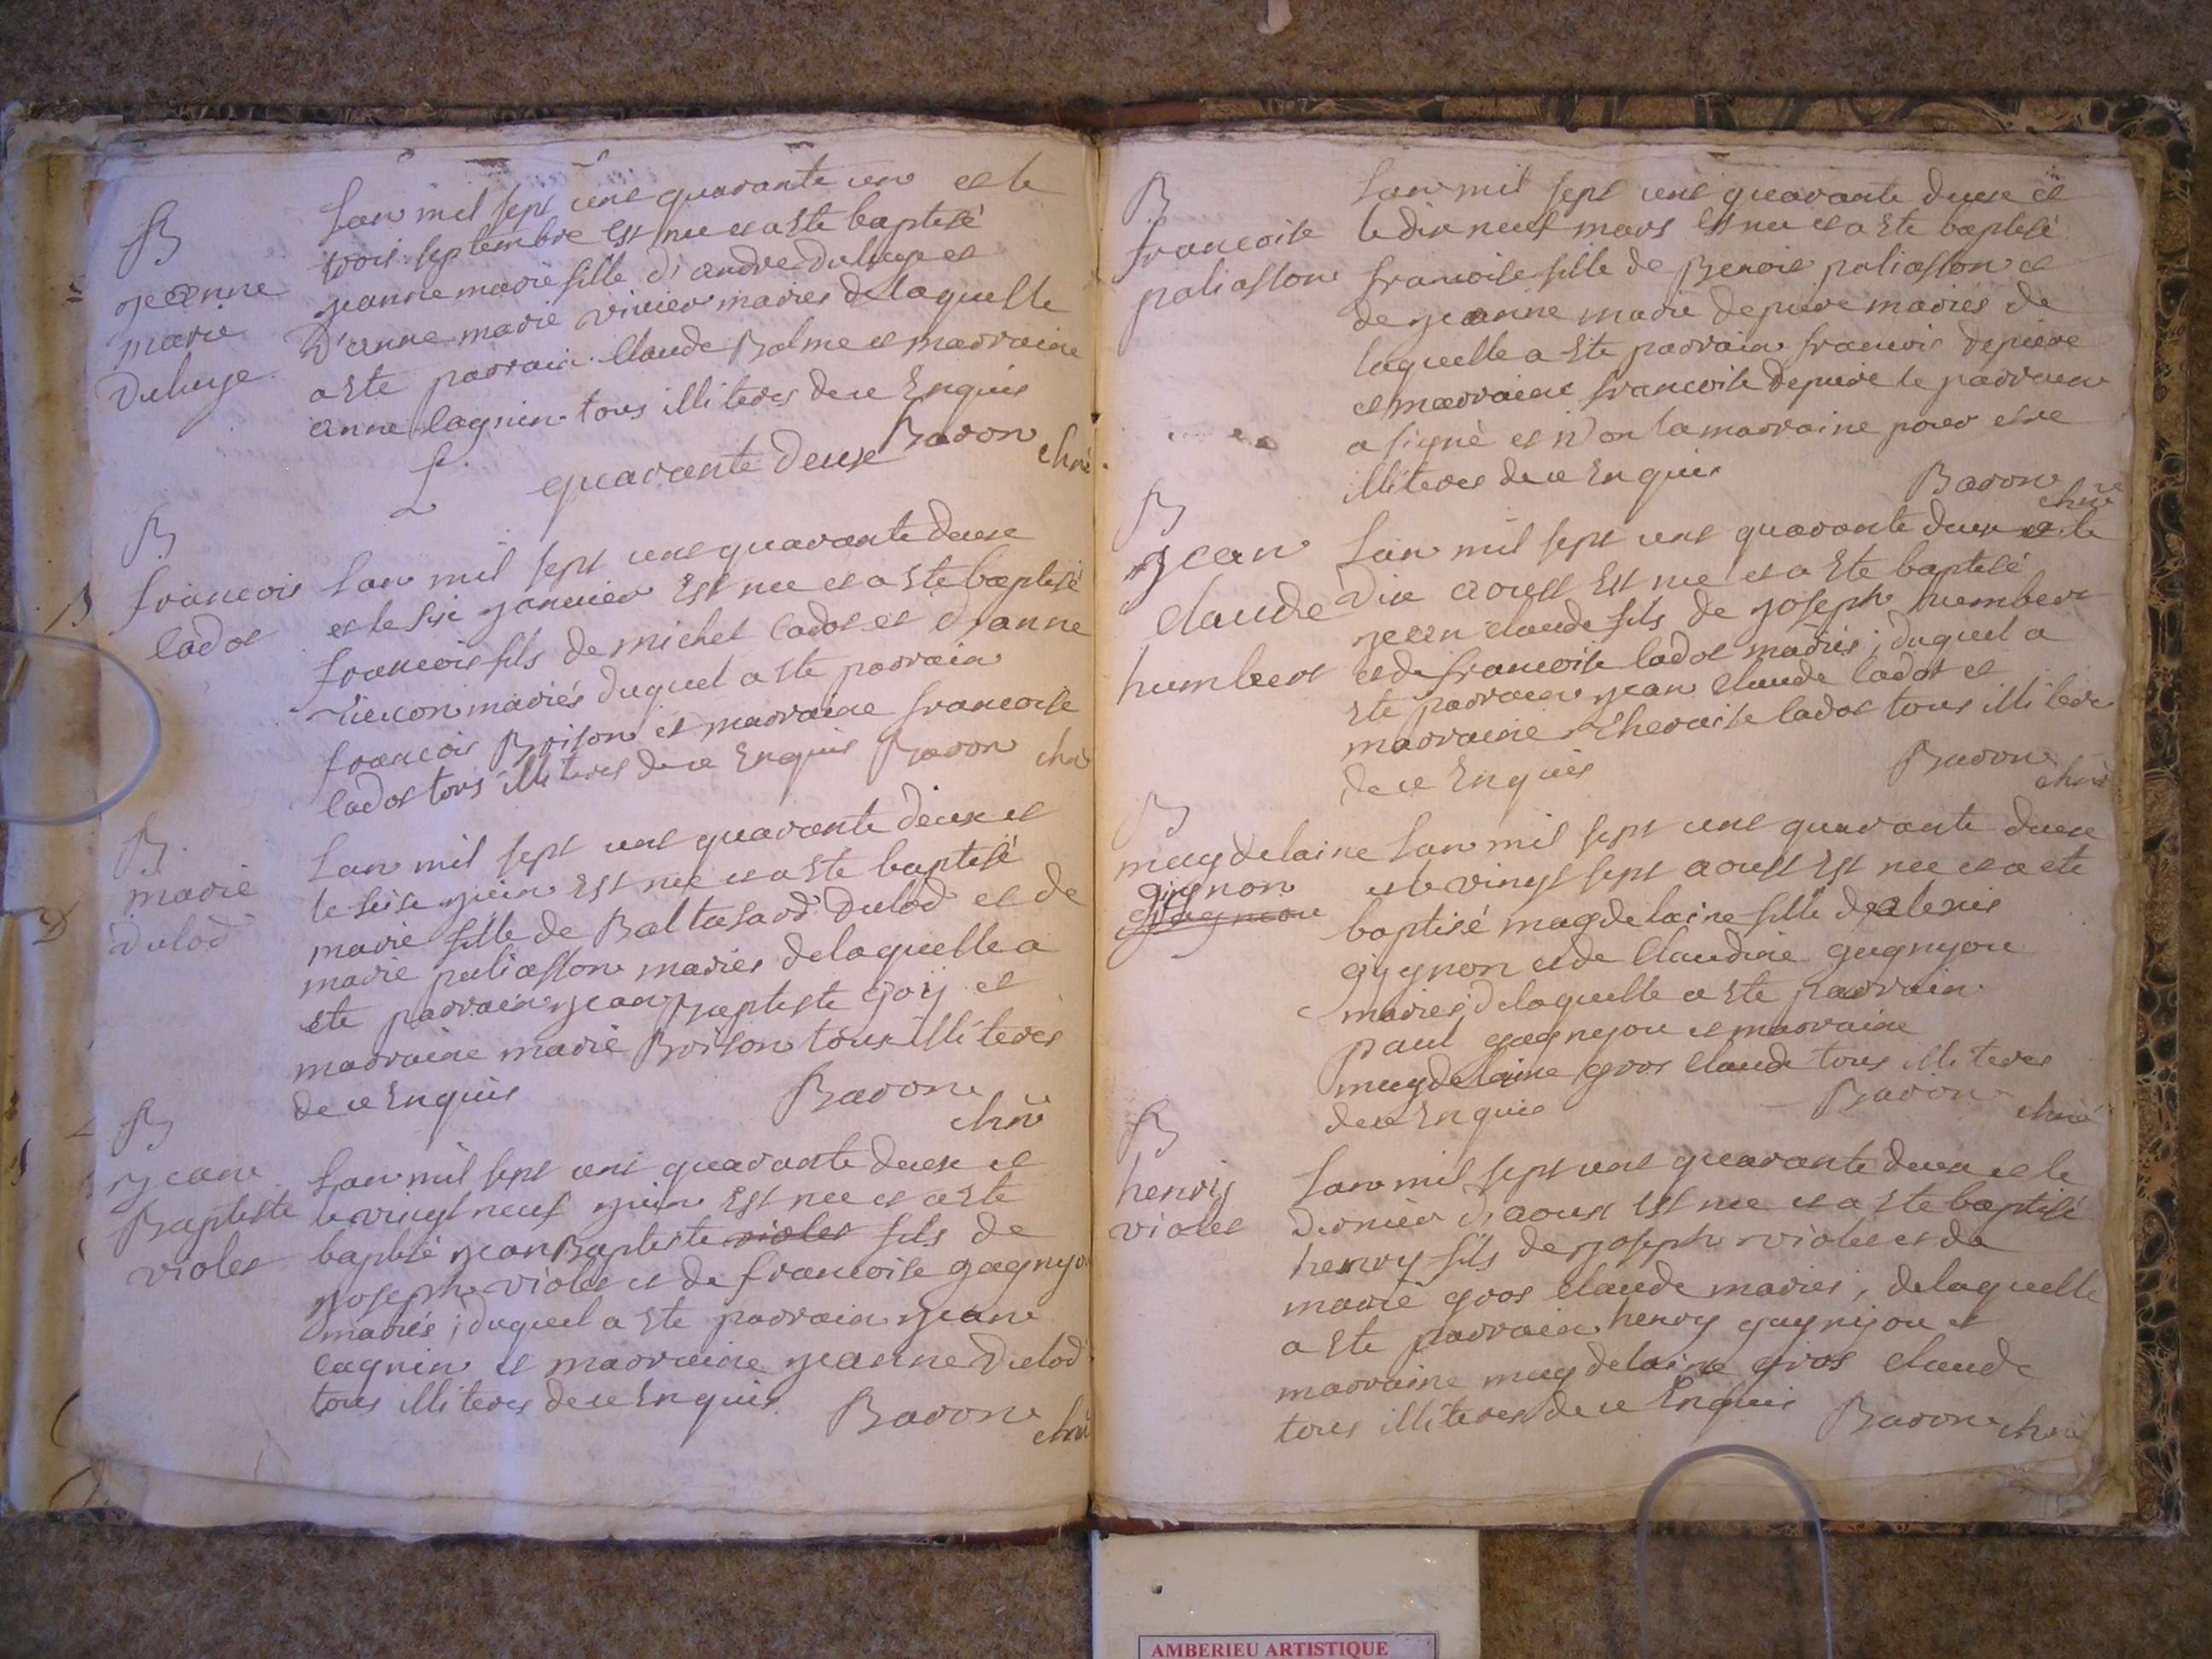 B
jeanne
marie
Deluye
Lan mil sept cent quarante un et le
trois septembre Est nee et a Ete baptisé
jeanne marie fille d'andre Deluye et
D'anne marie vivier maries delaquelle
a Ete parrain Claude Balme et marraine
anne lagnin tous illiteres de ce Enquis
Baron
chrê
quarante Deux
B
francois
Cadot
Lan mil sept cent quarante Deux
et le six janvier Est nee et a Ete baptisé
francois fils de michel Cadot et d'anne
mariés duquel a Ete parrain
francois Brison et marraine francoise
Cadot tous illiteres de ce Enquis Baron
B
marie
Dulod
Lan mil sept cent quarante deux et
le seise juin Est nee et a Ete baptisé
marie fille de Baltasard Dulod et de
marie paliasson maries delaquelle a
ete parrain jean Baptiste Goij et
marraine marie Brison tous illiteres
de ce Enquis
Baron
chrê
B
jean
Baptiste
violet
Lan mil sept cent quarante deux et
le vingt neuf juin Est nee et a Ete
baptisé jean Baptiste violet fils de
joseph violet et de francoise gagnyo
mariés ; duquel a Ete parrain jean
lagnin et marraine jeanne Dulod
tous illiteres de ce Enquis
Baron
chrê
B
francoise
paliasson
Lan mil sept cent quarante deux et
le dix neuf mars Est nee et a Ete baptisé
francoise fille de Benoit paliasson et
de jeanne marie depiere maries de
laquelle a Ete parrain francois depiere
et marraine francoise depiere le parrain
a signé et non la marraine pour etre
illiteres de ce Enquis
Baron
chrê
B
jean
claude
humbert
Lan mil sept cent quarante deux et le
Dix aoust Est nee et a Ete baptisé
jean claude fils de joseph humbert
et de francoise Cadot mariés ; duquel a
Ete parrain jean Claude Cadot et
marraine Cadot tous illitere
de ce Enquis
Baron
chrê
B
magdelaine
gygnon
Lan mil sept cent quarante deux
et le vingt sept aoust Est nee et a ete
baptisé magdelaine fille d'alexis
gygnon et de Claudine gagnyou
maries ; delaquelle a Ete parrain
paul gagneyou et marraine
magdelaine gros claude tous illiteres
de ce Enquis
Baron
chrê
B
henry
violet
Lan mil sept cent quarante deux et le
Dernier d'aoust Est nee et a Ete baptisé
henry fils de joseph violet et de
marie gros claude maries ; delaquelle
a Ete parrain henry gagnyou et
marraine magdelaine gros claude
tous illiteres de ce Enquis
Baron
chrê
AMBERIEU ARTISTIQUE